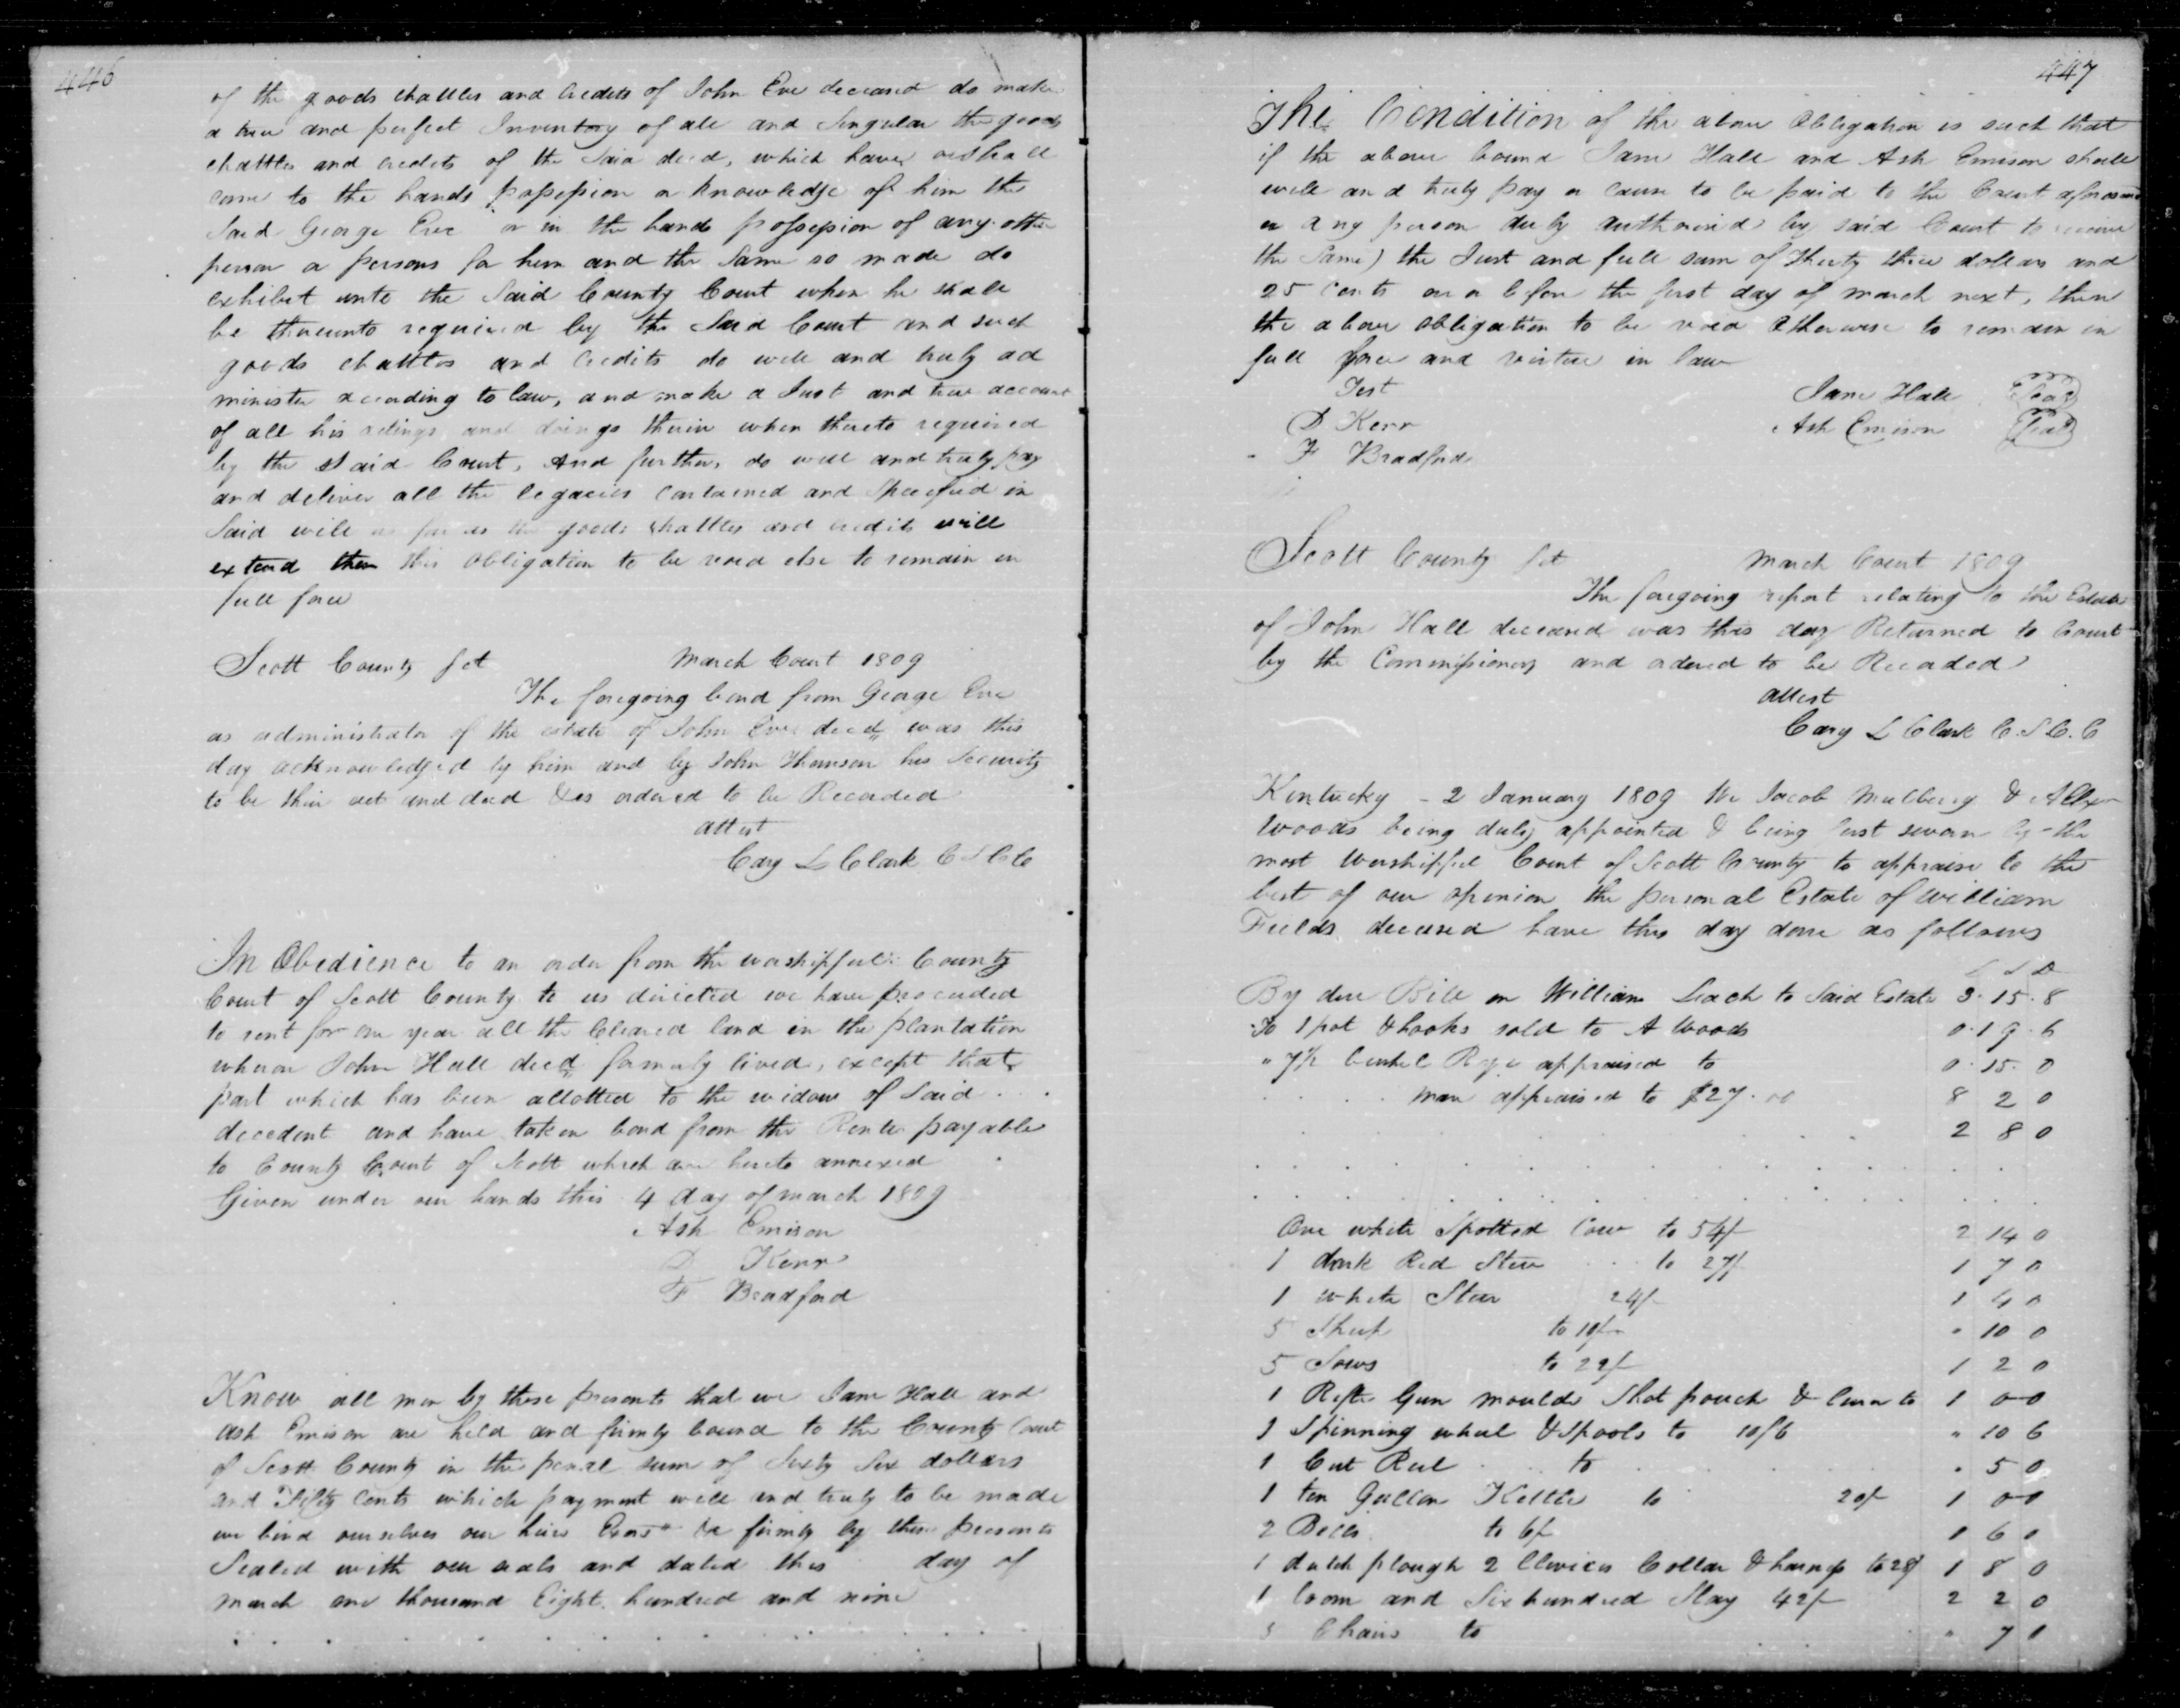 446
of the goods chattles and Credits of John Eve deceased do make
a true and perfect Inventory of all and Singular the goods
chattles and credits of the Said decd, which have or shall
come to the hands possession or knowledge of him the
Said George Eve or in the hands possession of any other
person or persons for him and the Same so made do
exhibit unto the Said County Court when he shall
be thereunto required by the Said Court and such
goods chattles and Credits do well and truly ad
minister according to law, and make a Just and true account
of all his actings and doings therein when thereto required
by the Said Court, And further, do well and truly pay
and deliver all the legacies contained and Specified in
Said will as far as the goods chattles and credits will
extend then this obligation to be void else to remain in
full force
Scott County Sct March Court 1809
The foregoing bond from George Eve
as administrator of the estate of John Eve decd was this
day acknowledged by him and by John Thomson his Security
to be their act and deed & is ordered to be Recorded
attest
Cary L Clark C S C C
In Obedience to an order from the worshipfull County
Court of Scott County to us directed we have proceeded
to rent for one year all the Cleared land in the plantation
whereon John Hall decd formerly lived, except that
part which has been allotted to the widow of Said
decedent and have taken bond from the Renter payable
to County Court of Scott which are hereto annexed
Given under our hands this 4 day of march 1809
Ash Emison
D Kerr
F Bradford
Know all men by these presents that we Jane Hall and
Ash Emison are held and firmly bound to the County Court
of Scott County in the penal sum of Sixty Six dollars
and Fifty Cents which payment well and truly to be made
we bind ourselves our heirs Exors &c firmly by these presents
Sealed with our seals and dated this day of
march one thousand Eight hundred and nine
447
The Condition of the above Obligation is such that
if the above bound Jane Hall and Ash Emison shall
well and truly pay or cause to be paid to the Court aforesaid
or any person duly authorised by said Court to receive
the Same) the Just and full sum of Thirty three dollars and
25 Cents on or before the first day of march next, then
the above obligation to be void Otherwise to remain in
full force and virtue in law
Test Jane Hall Seal
D Kerr Ash Emison Seal
F Bradford
Scott County Sct March Court 1809
The foregoing report relating to the Estate
of John Hall deceased was this day Returned to Court
by the Commissioners and ordered to be Recorded
attest
Cary L Clark C. S C. C
Kentucky - 2 January 1809 We Jacob Mulberry & Alexr
Woods being duly appointed & being first sworn by the
most Worshipful Court of Scott County to appraise to the
best of our opinion the personal Estate of William
Fields deceased have this day done as follows
L S D
By due Bill on William Leach to Said Estate 3. 15. 8
To 1 pot & hooks sold to A Woods 0. 19. 6
" 7½ bushel Rye appraised to 0. 15. 0
mare appraised to $27.00 8 2 0
2 8 0
One white Spotted Cow to 54/ 2 14 0
1 dark Red Steer to 27/ 1 7 0
1 white Steer 24/ 1 4 0
5 Sheep to 10/ " 10 0
5 Sows to 22/ 1 2 0
1 Rifle Gun moulds Shot pouch & 1 0 0
1 Spinning wheel & Spools to 10/6 " 10 6
1 Cut Reel to " 5 0
1 ten Gallon Kettle to 20/ 1 0 0
2 Bells to 6/ 0 6 0
1 dutch plough 2 Clevices Collar & harness to 28/ 1 8 0
1 loom and Six hundred Slay 42/ 2 2 0
Chairs to " 7